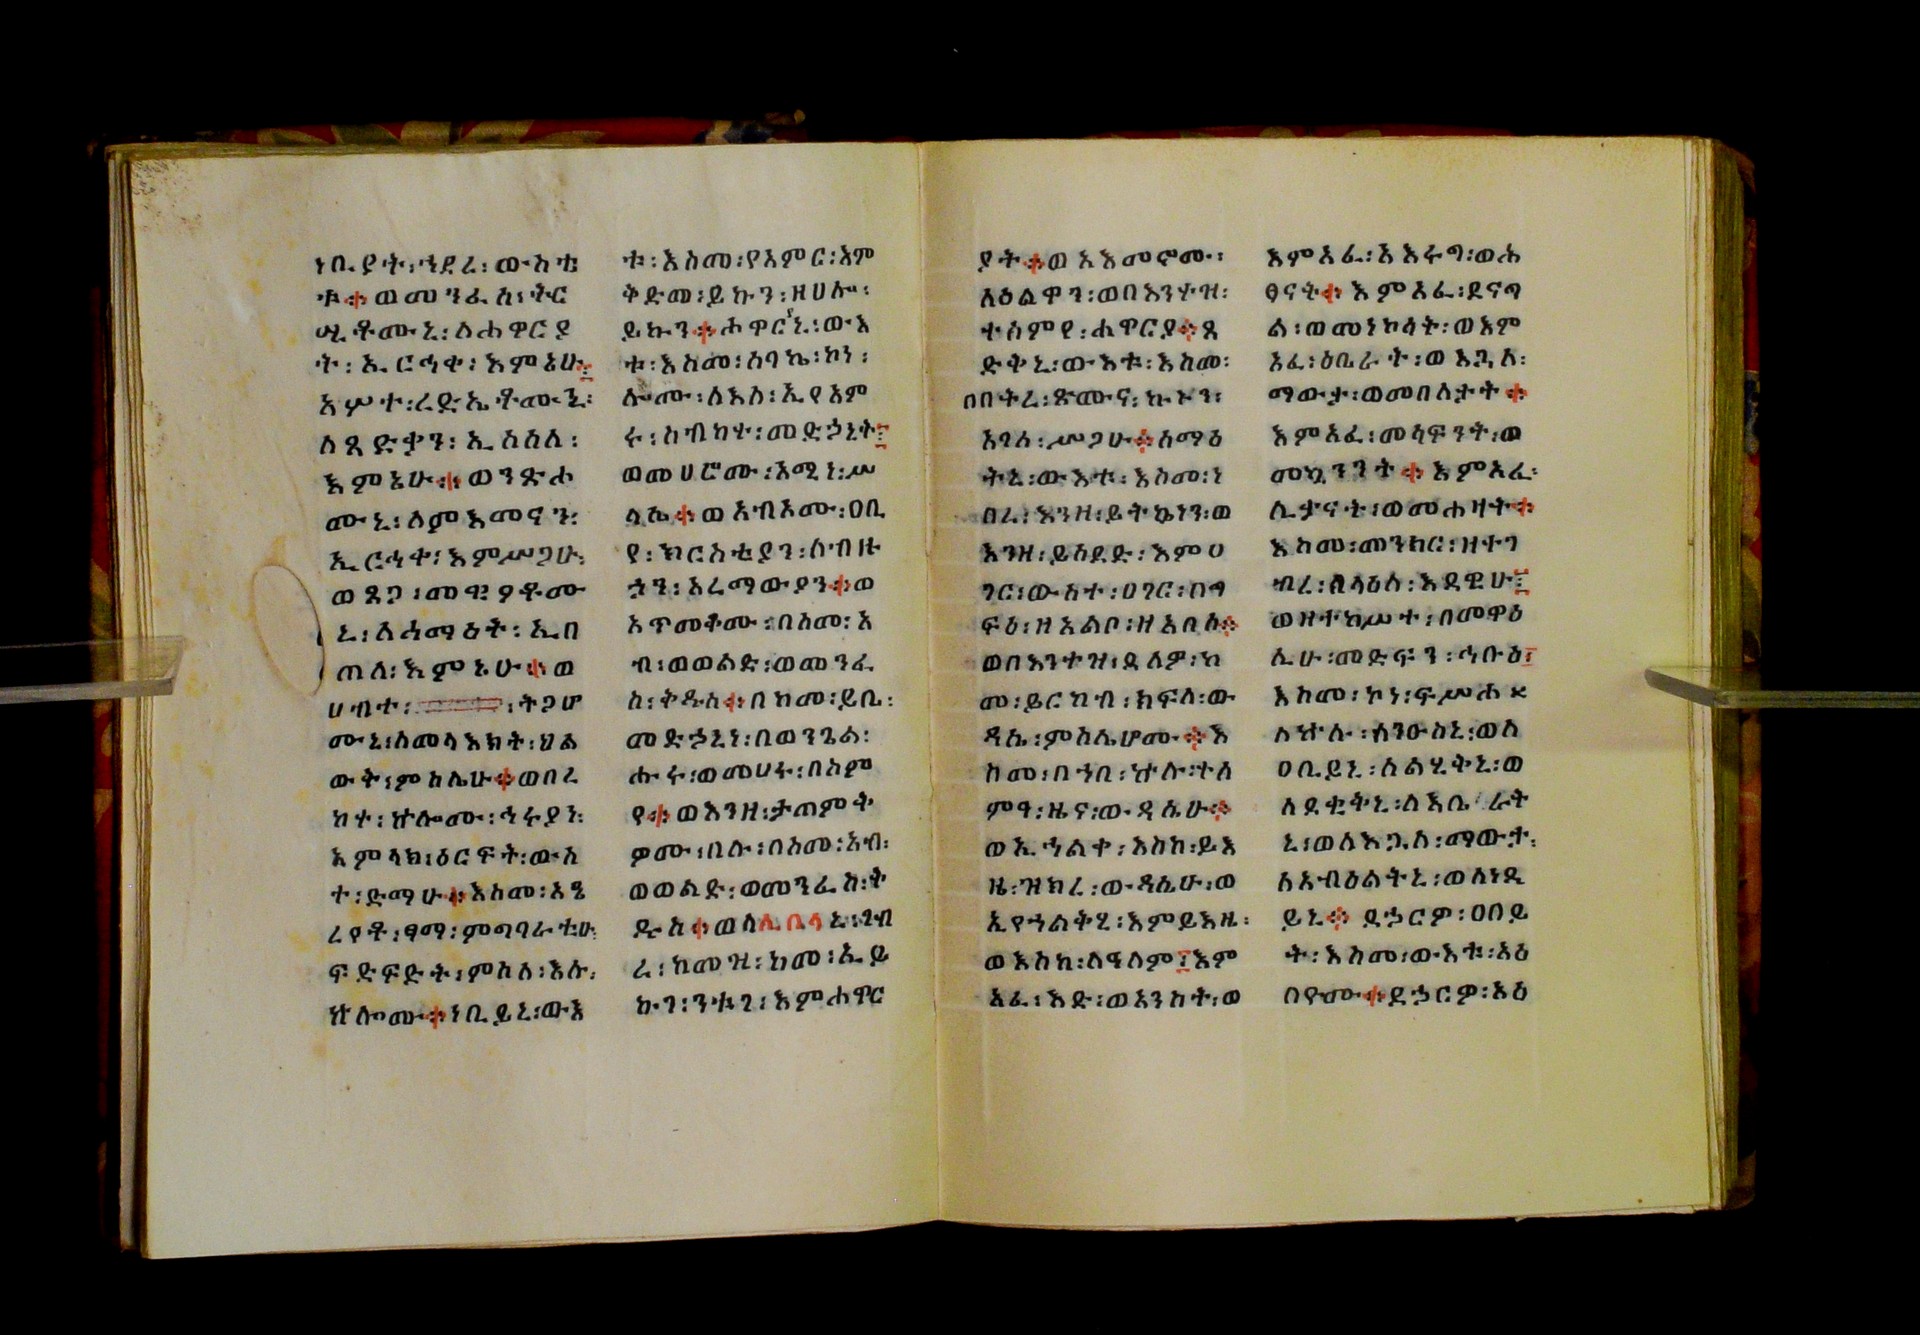 ነቢያት፡ኀደረ፡ውስቴ
ቱ። ወመንፈስ፡ትር
ሢቶሙኒ፡ለሐዋርያ
ት፡ኢርኅቀ፡እምኔሁ፤
አሥተ፡ረድኤቶሙኒ፡
ለጻድቃን፡ኢሰሰለ፡
እምኔሁ። ወንጽሐ
ሙኒ፡ለምእመናን፡
ኢርኅቀ፡እምሥጋሁ፡
ወጸጋ፡መዊዖቶሙ
ኒ፡ለሰማዕት፡ኢበ
ጠለ፡እምኔሁ። ወ
ሀብተ፡ ፡ትጋሆ
ሙኒ፡ለመላእክት፡ህል
ውት፡ምስሌሁ። ወበረ
ከተ፡ኵሎሙ፡ኅሩያን፡
እምላክ፡ዕርፍት፡ውስ
ተ፡ድማሁ። እስመ፡አዔ
ረዮቶ፡ፃማ፡ምግባራቲሁ፡
ፍድፍድት፡ምስለ፡እሉ፡
ኵሎሙ። ነቢይኒ፡ውእ
ቱ፡እስመ፡የአምር፡እም
ቅድመ፡ይኩን፡ዘሀሎ፡
ይኩን። ሐዋርያኒ፡ውእ
ቱ፡እስመ፡ሰባኬ፡ኮነ፡
ሎሙ፡ለእለ፡ኢየአም
ሩ፡ስብከተ፡መድኃኒት፤
ወመሀሮሙ፡እሚነ፡ሥ
ላሴ። ወአብኦሙ፡ዐቢ
የ፡ክርስቲያን፡ለብዙ
ኃን፡አረማውያን። ወ
አጥመቆሙ፡በስመ፡አ
ብ፡ወወልድ፡ወመንፈ
ስ፡ቅዱስ። በከመ፡ይቤ፡
መድኃኒነ፡በወንጌል፡
ሑሩ፡ወመሀሩ፡በስም
የ። ወእንዘ፡ታጠምቅ
ዎሙ፡በሉ፡በስመ፡አብ፡
ወወልድ፡ወመንፈስ፡ቅ
ዱስ። ወለሊቢላኒ፡ገብ
ረ፡ከመዝ፡ከመ፡ኢይ
ኩን፡ንቱገ፡እምሐዋር
ያት። ወአእመሮሙ፡
ለዕልዋን፡ወበእንተዝ፡
ተሰምየ፡ሐዋርያ። ጻ
ድቅኒ፡ውእቱ፡እስመ፡
በበትረ፡ጽሙና፡ኰነነ፡
እንስ፡ሥጋሁ። ሰማዕ
ትኒ፡ውእቱ፡እስመ፡ነ
በረ፡እንዘ፡ይትኴነን፡ወ
እንዘ፡ይሰደድ፡እምሀ
ገር፡ውስተ፡ሀገር፡በግ
ፍዕ፡ዘአልቦ፡ዘአበሰ።
ወበእንተዝ፡ደለዎ፡ከ
መ፡ይርከብ፡ክፍለ፡ው
ዳሴ፡ምስሌሆሙ። እ
ስመ፡በኀበ፡ኵሉ፡ተሰ
ምዓ፡ዜና፡ውዳሴሁ።
ወኢኀልቀ፡እስከ፡ይእ
ዜ፡ዝክረ፡ውዳሴሁ፡ወ
ኢየኀልቅሂ፡እምይእዜ፡
ወእስከ፡ለዓለም፤ እም
አፈ፡እድ፡ወአንስት፡ወ
እምአፈ፡አእሩግ፡ወሕ
ፃናት። እምአፈ፡ደናግ
ል፡ወመነኮሳት፡ወእም
አፈ፡ዕቤራት፡ወእጓለ፡
ማውታ፡ወመበለታት።
እምአፈ፡መሳፍንት፡ወ
መኳንንት። እምአፈ፡
ሊቃናት፡ወመሐዛት።
እስመ፡መንክር፡ዘተገ
ብረ፡በላዕለ፡እደዊሁ፤
ወዘተከሥተ፡በመዋዕ
ሊሁ፡መድፍን፡ኅቡዕ፤
እስመ፡ኮነ፡ፍሥሐ
ለኵሉ፡ለንዑስኒ፡ወለ
ዐቢይኒ፡ለልሂቅኒ፡ወ
ለደቂቅኒ፡ለእቤራት
ኒ፡ወለእጓለ፡ማውታ፡
ለአብዕልትኒ፡ወለነዳ
ይኒ። ደኃርዎ፡ዐበይ
ት፡እስመ፡ውእቱ፡አዕ
በዮሙ። ደኃርዎ፡አዕ